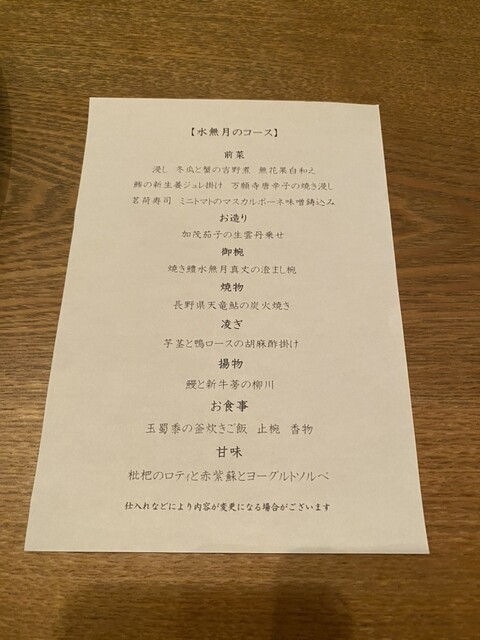 【水無月のコース】
前菜
浸し 冬瓜と蟹の吉野煮 無花果白和え
鯵の新生姜ジュレ掛け 万願寺唐辛子の焼き浸し
茗荷寿司 ミニトマトのマスカルポーネ味噌鋳込み
お造り
加茂茄子の生雲丹乗せ
御椀
焼き鱧水無月真丈の澄まし椀
焼物
長野県天竜鮎の炭火焼き
凌ぎ
芋茎と鴨ロースの胡麻酢掛け
揚物
鰻と新牛蒡の柳川
お食事
玉蜀黍の釜炊きご飯 止椀 香物
甘味
枇杷のロティと赤紫蘇とヨーグルトソルベ
仕入れなどにより内容が変更になる場合がございます